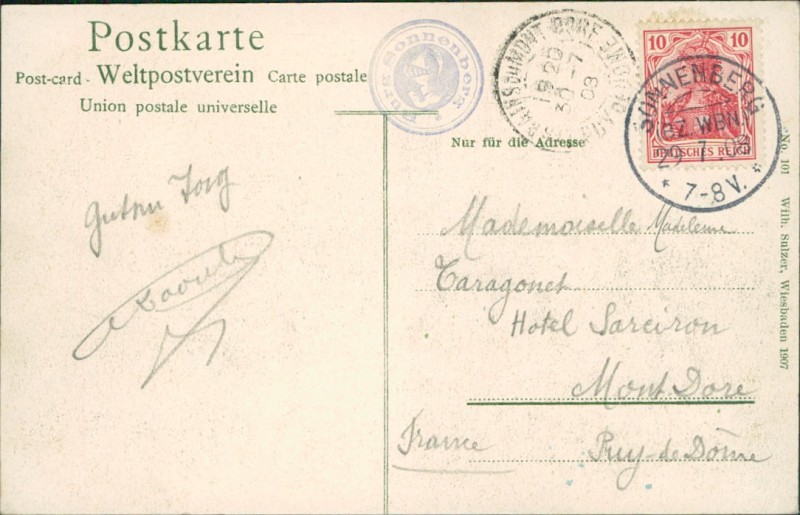 Postkarte
Post-card - Weltpostverein Carte postale
Union postale universelle
Burg Sonnenberg
MONT-DORE
PUY DE DOME
19 20
30 -7
08
10 10
DEUTSCHES REICH
SONNENBERG
(BZ. WBN.)
7
* 7-8 V. *
Nur für die Adresse
Mademoiselle Madeleine
Taragonet
Hotel Sarciron
Mont Dore
France Puy-de-Dôme
No. 101 Wilh. Sulzer, Wiesbaden 1907